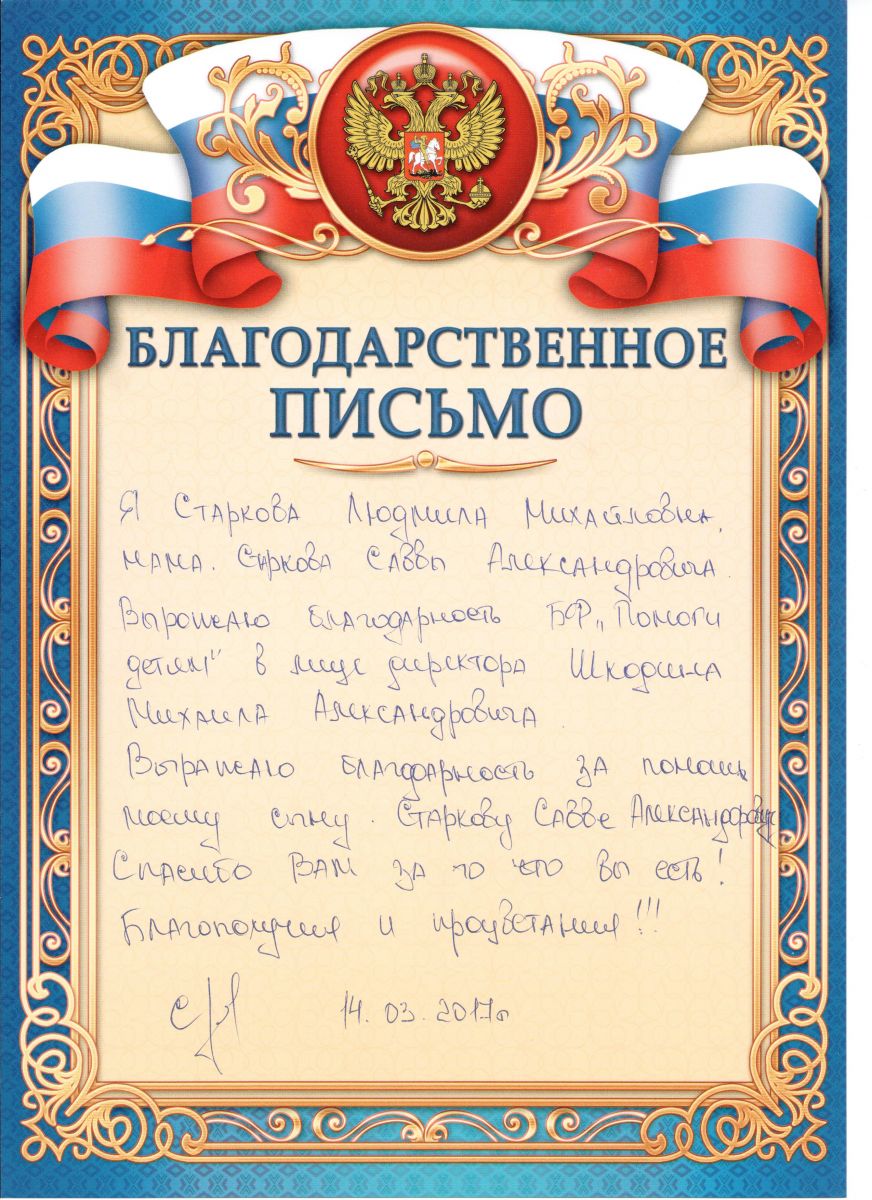 БЛАГОДАРСТВЕННОЕ
ПИСЬМО
Я Старкова Людмила Михайловна,
мама. Старкова Саввы Александровича.
Вырожаю благодарность БФ „Помоги
детям" в лице директора Шкодина
Михаила Александровича.
Выражаю благодарность за помощь
моему сыну. Старкову Савве Александровичу
Спасибо Вам за то что вы есть!
Благополучия и процветания!!!
14.03.2017г